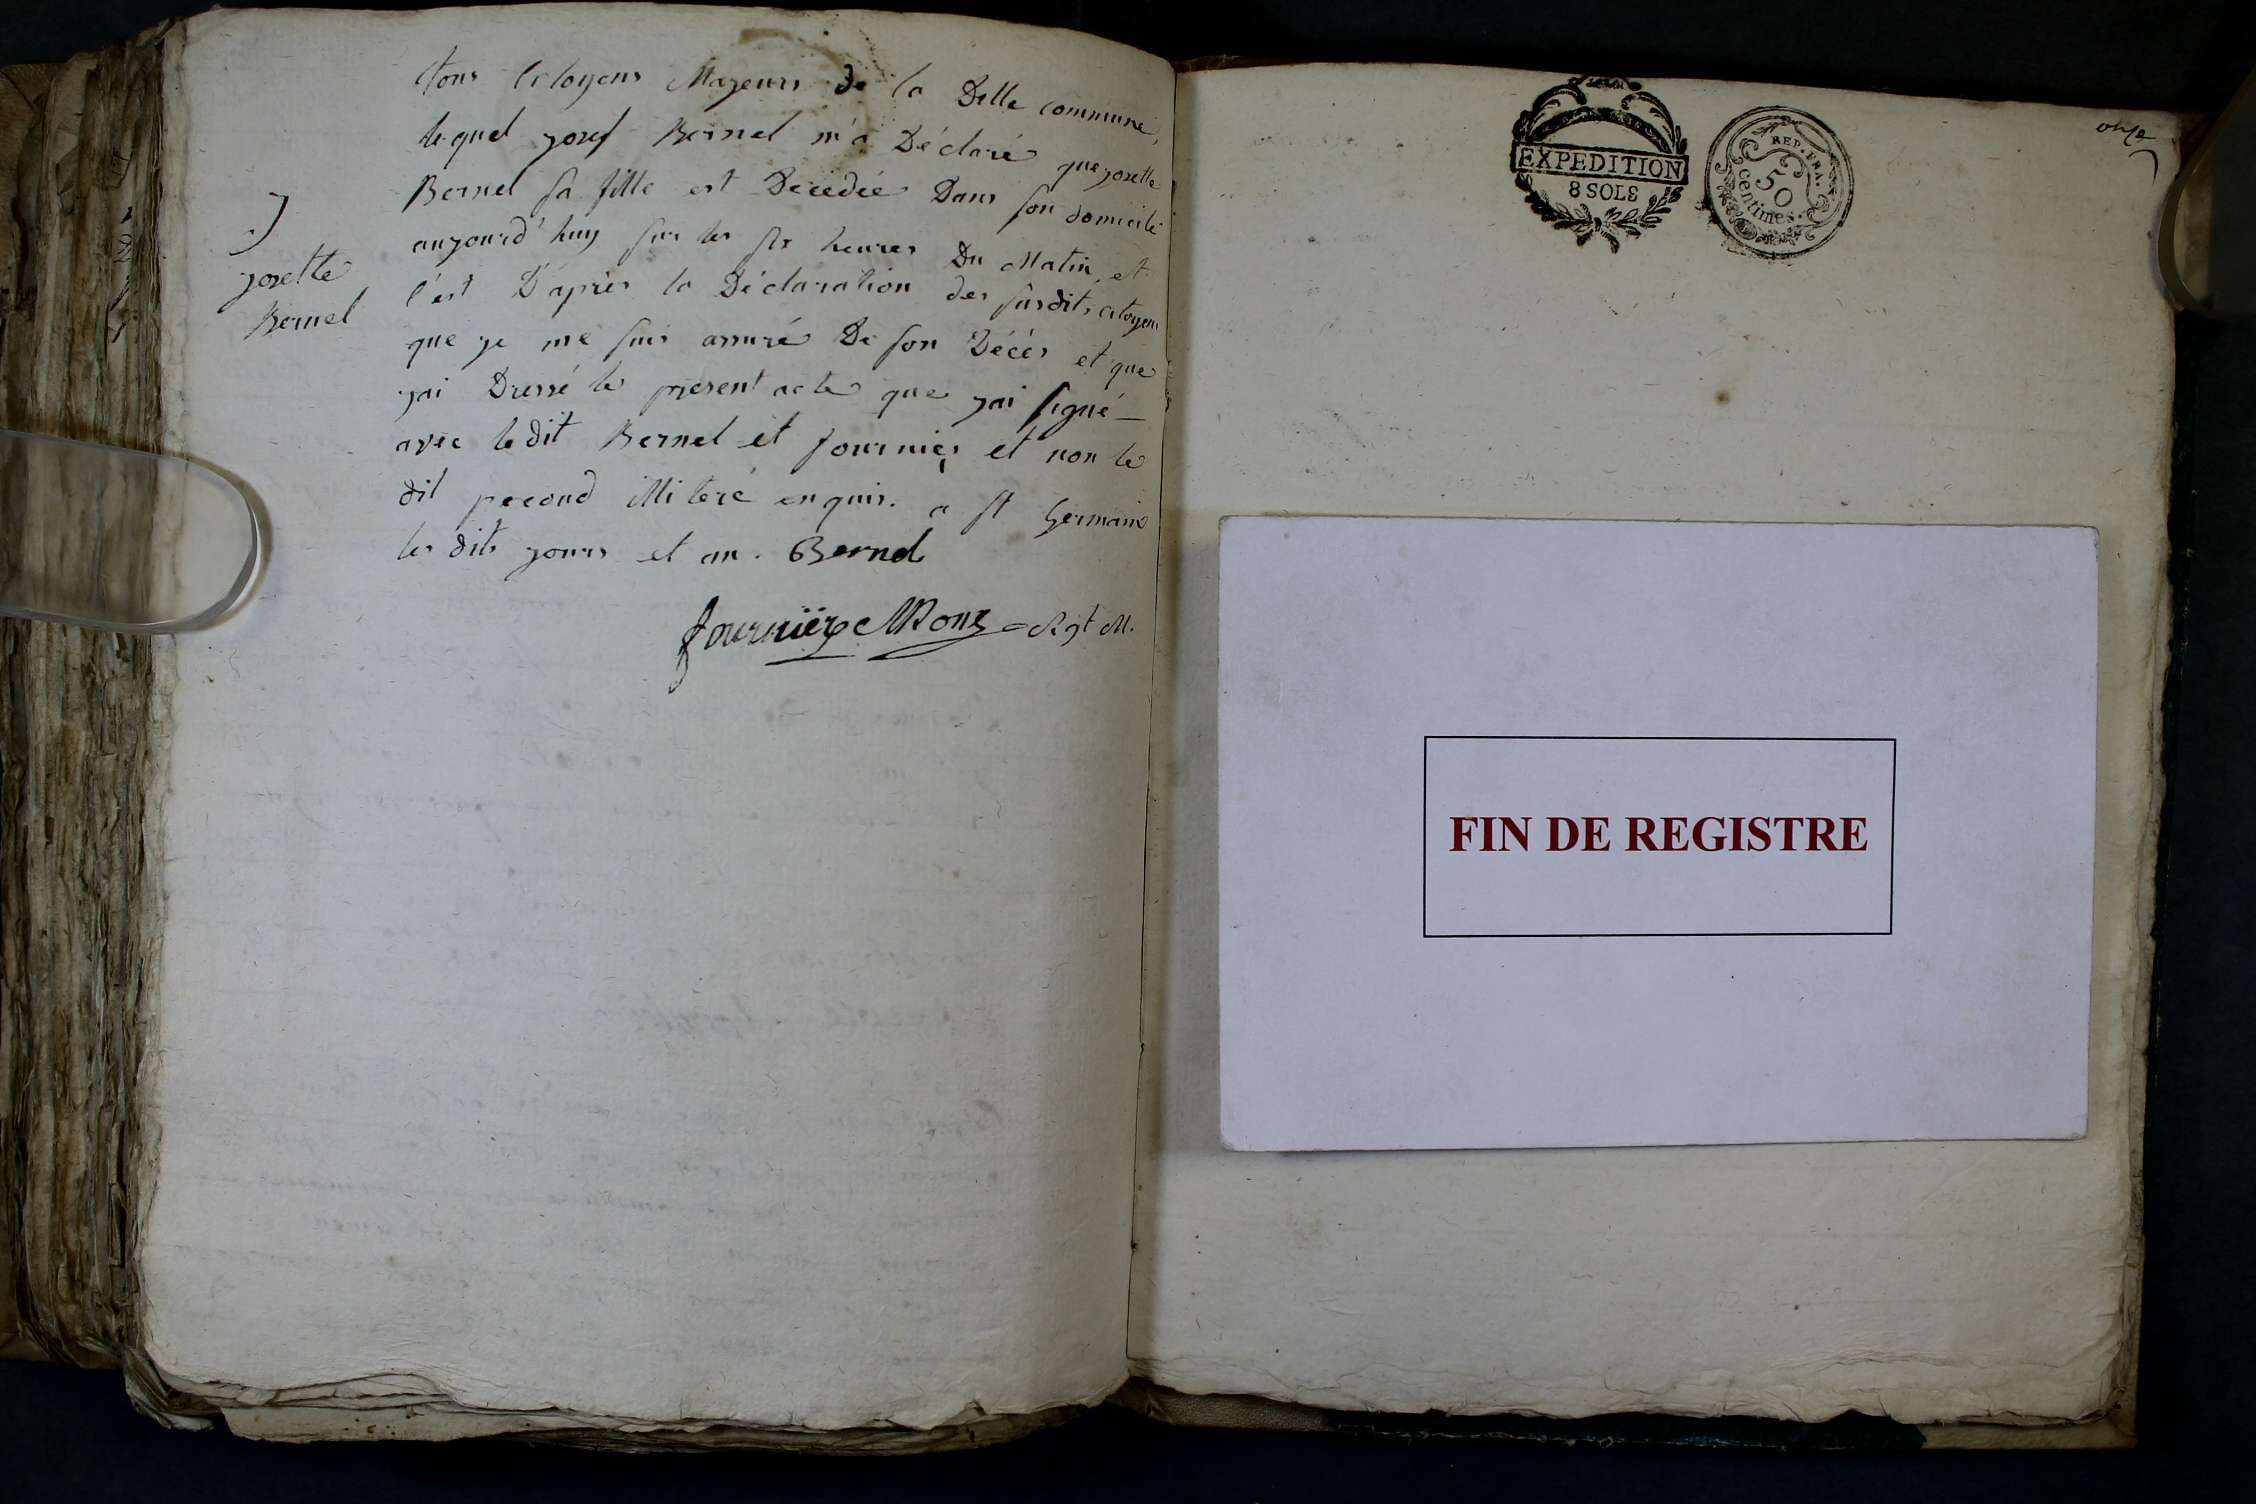 tous Citoyens Majeurs de la Ditte commune,
le quel josef Bernel m'a Déclaré que josette
Bernel sa fille est Décédée Dans son domicile
aujourd'huy sur les six heures Du Matin, et
c'est D'après la Déclaration des susdits citoyens
que je me suis assuré De son Décés et que
jai Dressé le present acte que jai signé
avec le dit Bernel et fournier et non le
dit second illiteré enquis. a st Germain
les dits jours et an. Bernel
fournier
josette
Bernel
onze
EXPEDITION
8 SOLS
REP. FRA.
50
centimes.
FIN DE REGISTRE